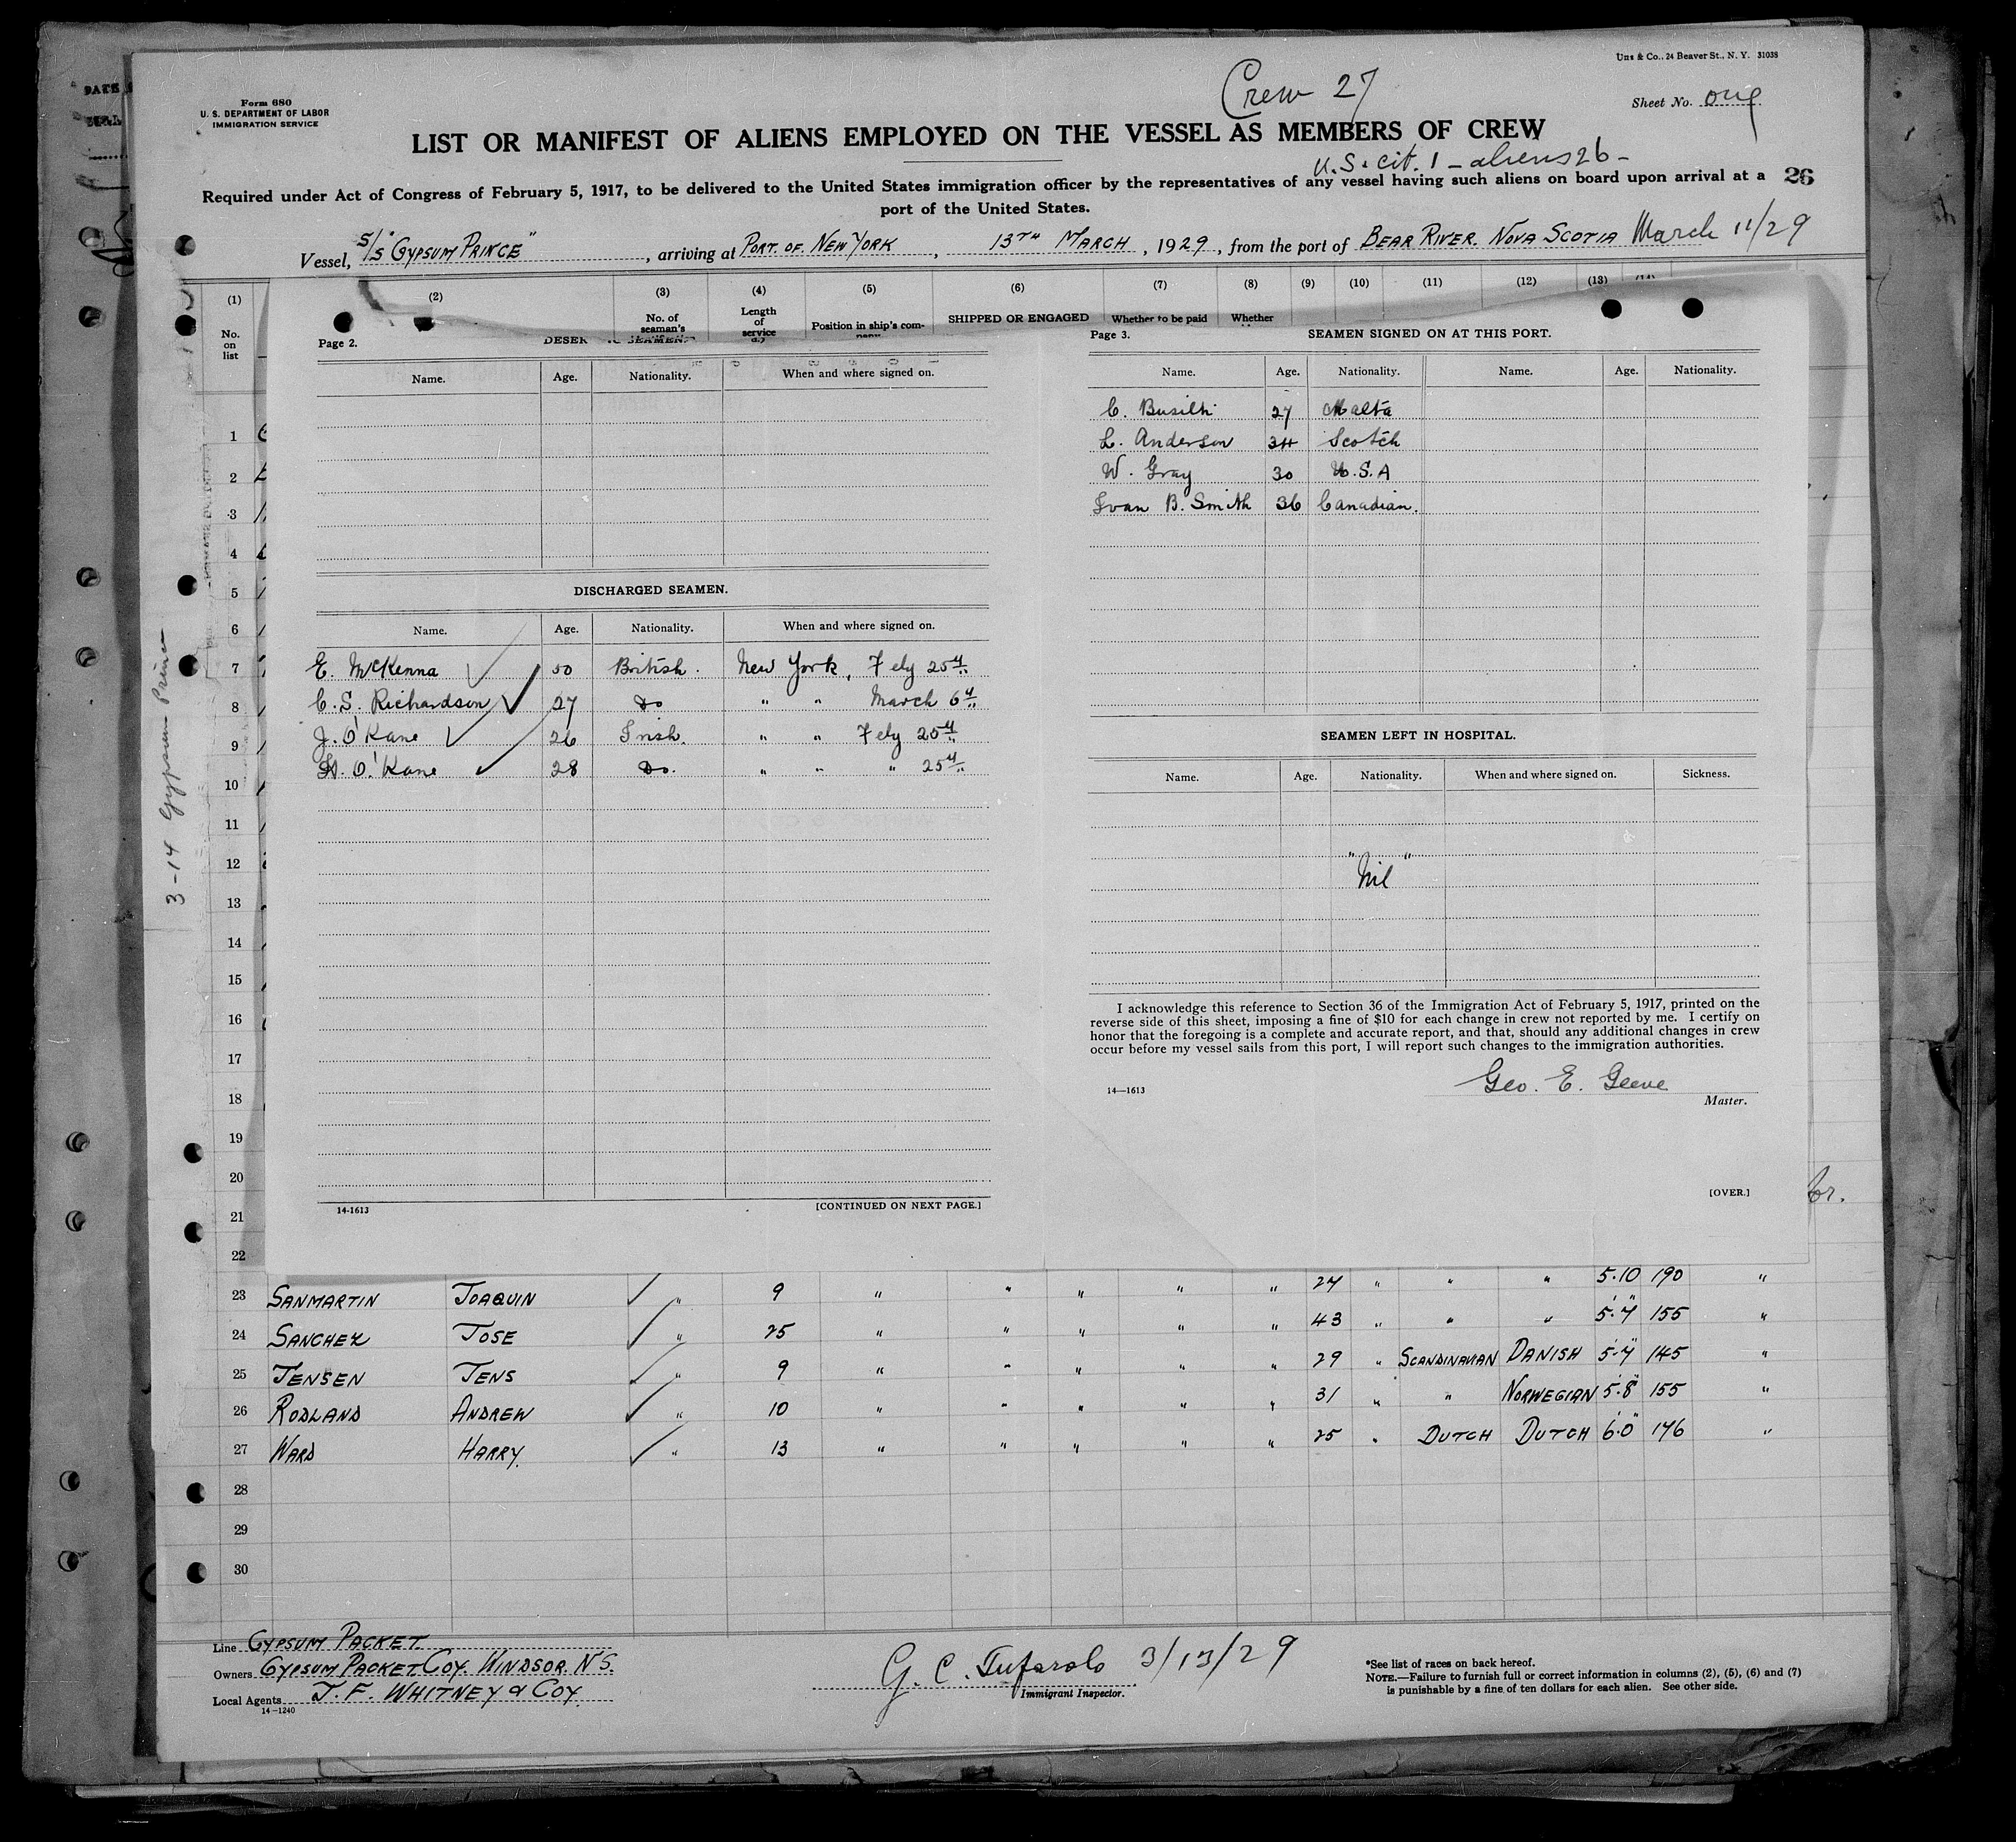 Uns & Co., 24 Beaver St., N. Y. 31038
Crew 27
Form 680
U. S. DEPARTMENT OF LABOR
IMMIGRATION SERVICE
Sheet No. one
LIST OR MANIFEST OF ALIENS EMPLOYED ON THE VESSEL AS MEMBERS OF CREW
U.S. cit. 1 - aliens 26 -
Required under Act of Congress of February 5, 1917, to be delivered to the United States immigration officer by the representatives of any vessel having such aliens on board upon arrival at a 26
port of the United States.
Vessel, S/S "GYPSUM PRINCE", arriving at PORT OF NEW YORK, 13TH MARCH, 1929, from the port of BEAR RIVER. NOVA SCOTIA March 11/29
(1) (2) (3) (4) (5) (6) (7) (8) (9) (10) (11) (12) (13)
No. on list
No. of seaman's
Length of service
Position in ship's com-
SHIPPED OR ENGAGED
Whether to be paid
Whether
Page 2.
SEAMEN.
Name. Age. Nationality. When and where signed on.
DISCHARGED SEAMEN.
Name. Age. Nationality. When and where signed on.
E. McKenna 50 British. New York, Feby 25th
C. S. Richardson 27 Do " " March 6th
J. O'Kane 26 Irish. " " Feby 25th
O'Kane 28 Do. " " " 25th
14-1613 [CONTINUED ON NEXT PAGE.]
Page 3. SEAMEN SIGNED ON AT THIS PORT.
Name. Age. Nationality. Name. Age. Nationality.
C. Busilli 27 Malta
L. Anderson 34 Scotch
W. Gray 30 U.S.A
Ivan B. Smith 36 Canadian.
SEAMEN LEFT IN HOSPITAL.
Name. Age. Nationality. When and where signed on. Sickness.
" "
Nil
I acknowledge this reference to Section 36 of the Immigration Act of February 5, 1917, printed on the
reverse side of this sheet, imposing a fine of $10 for each change in crew not reported by me. I certify on
honor that the foregoing is a complete and accurate report, and that, should any additional changes in crew
occur before my vessel sails from this port, I will report such changes to the immigration authorities.
Geo. E. Geeve
14—1613
Master.
[OVER.]
1
2
3
4
5
6
7
8
9
10
11
12
13
14
15
16
17
18
19
20
21
22
3-14 Gypsum Prince
23 SANMARTIN JOAQUIN " 9 " " " " " 27 " " " 5.10 190 "
24 SANCHEZ JOSE " 25 " " " " " 43 " " " 5'.7" 155 "
25 JENSEN JENS " 9 " " " " " 29 " SCANDINAVIAN DANISH 5'.7" 145 "
26 RODLAND ANDREW " 10 " " " " " 31 " " NORWEGIAN 5'.8" 155 "
27 WARD HARRY. " 13 " " " " " 25 " DUTCH DUTCH 6'.0" 176 "
28
29
30
Line GYPSUM PACKET.
Owners GYPSUM PACKET COY. WINDSOR. N S.
Local Agents J. F. WHITNEY & COY.
14—1240
G. C. Tufarolo 3/13/29
Immigrant Inspector.
*See list of races on back hereof.
NOTE.—Failure to furnish full or correct information in columns (2), (5), (6) and (7)
is punishable by a fine of ten dollars for each alien. See other side.